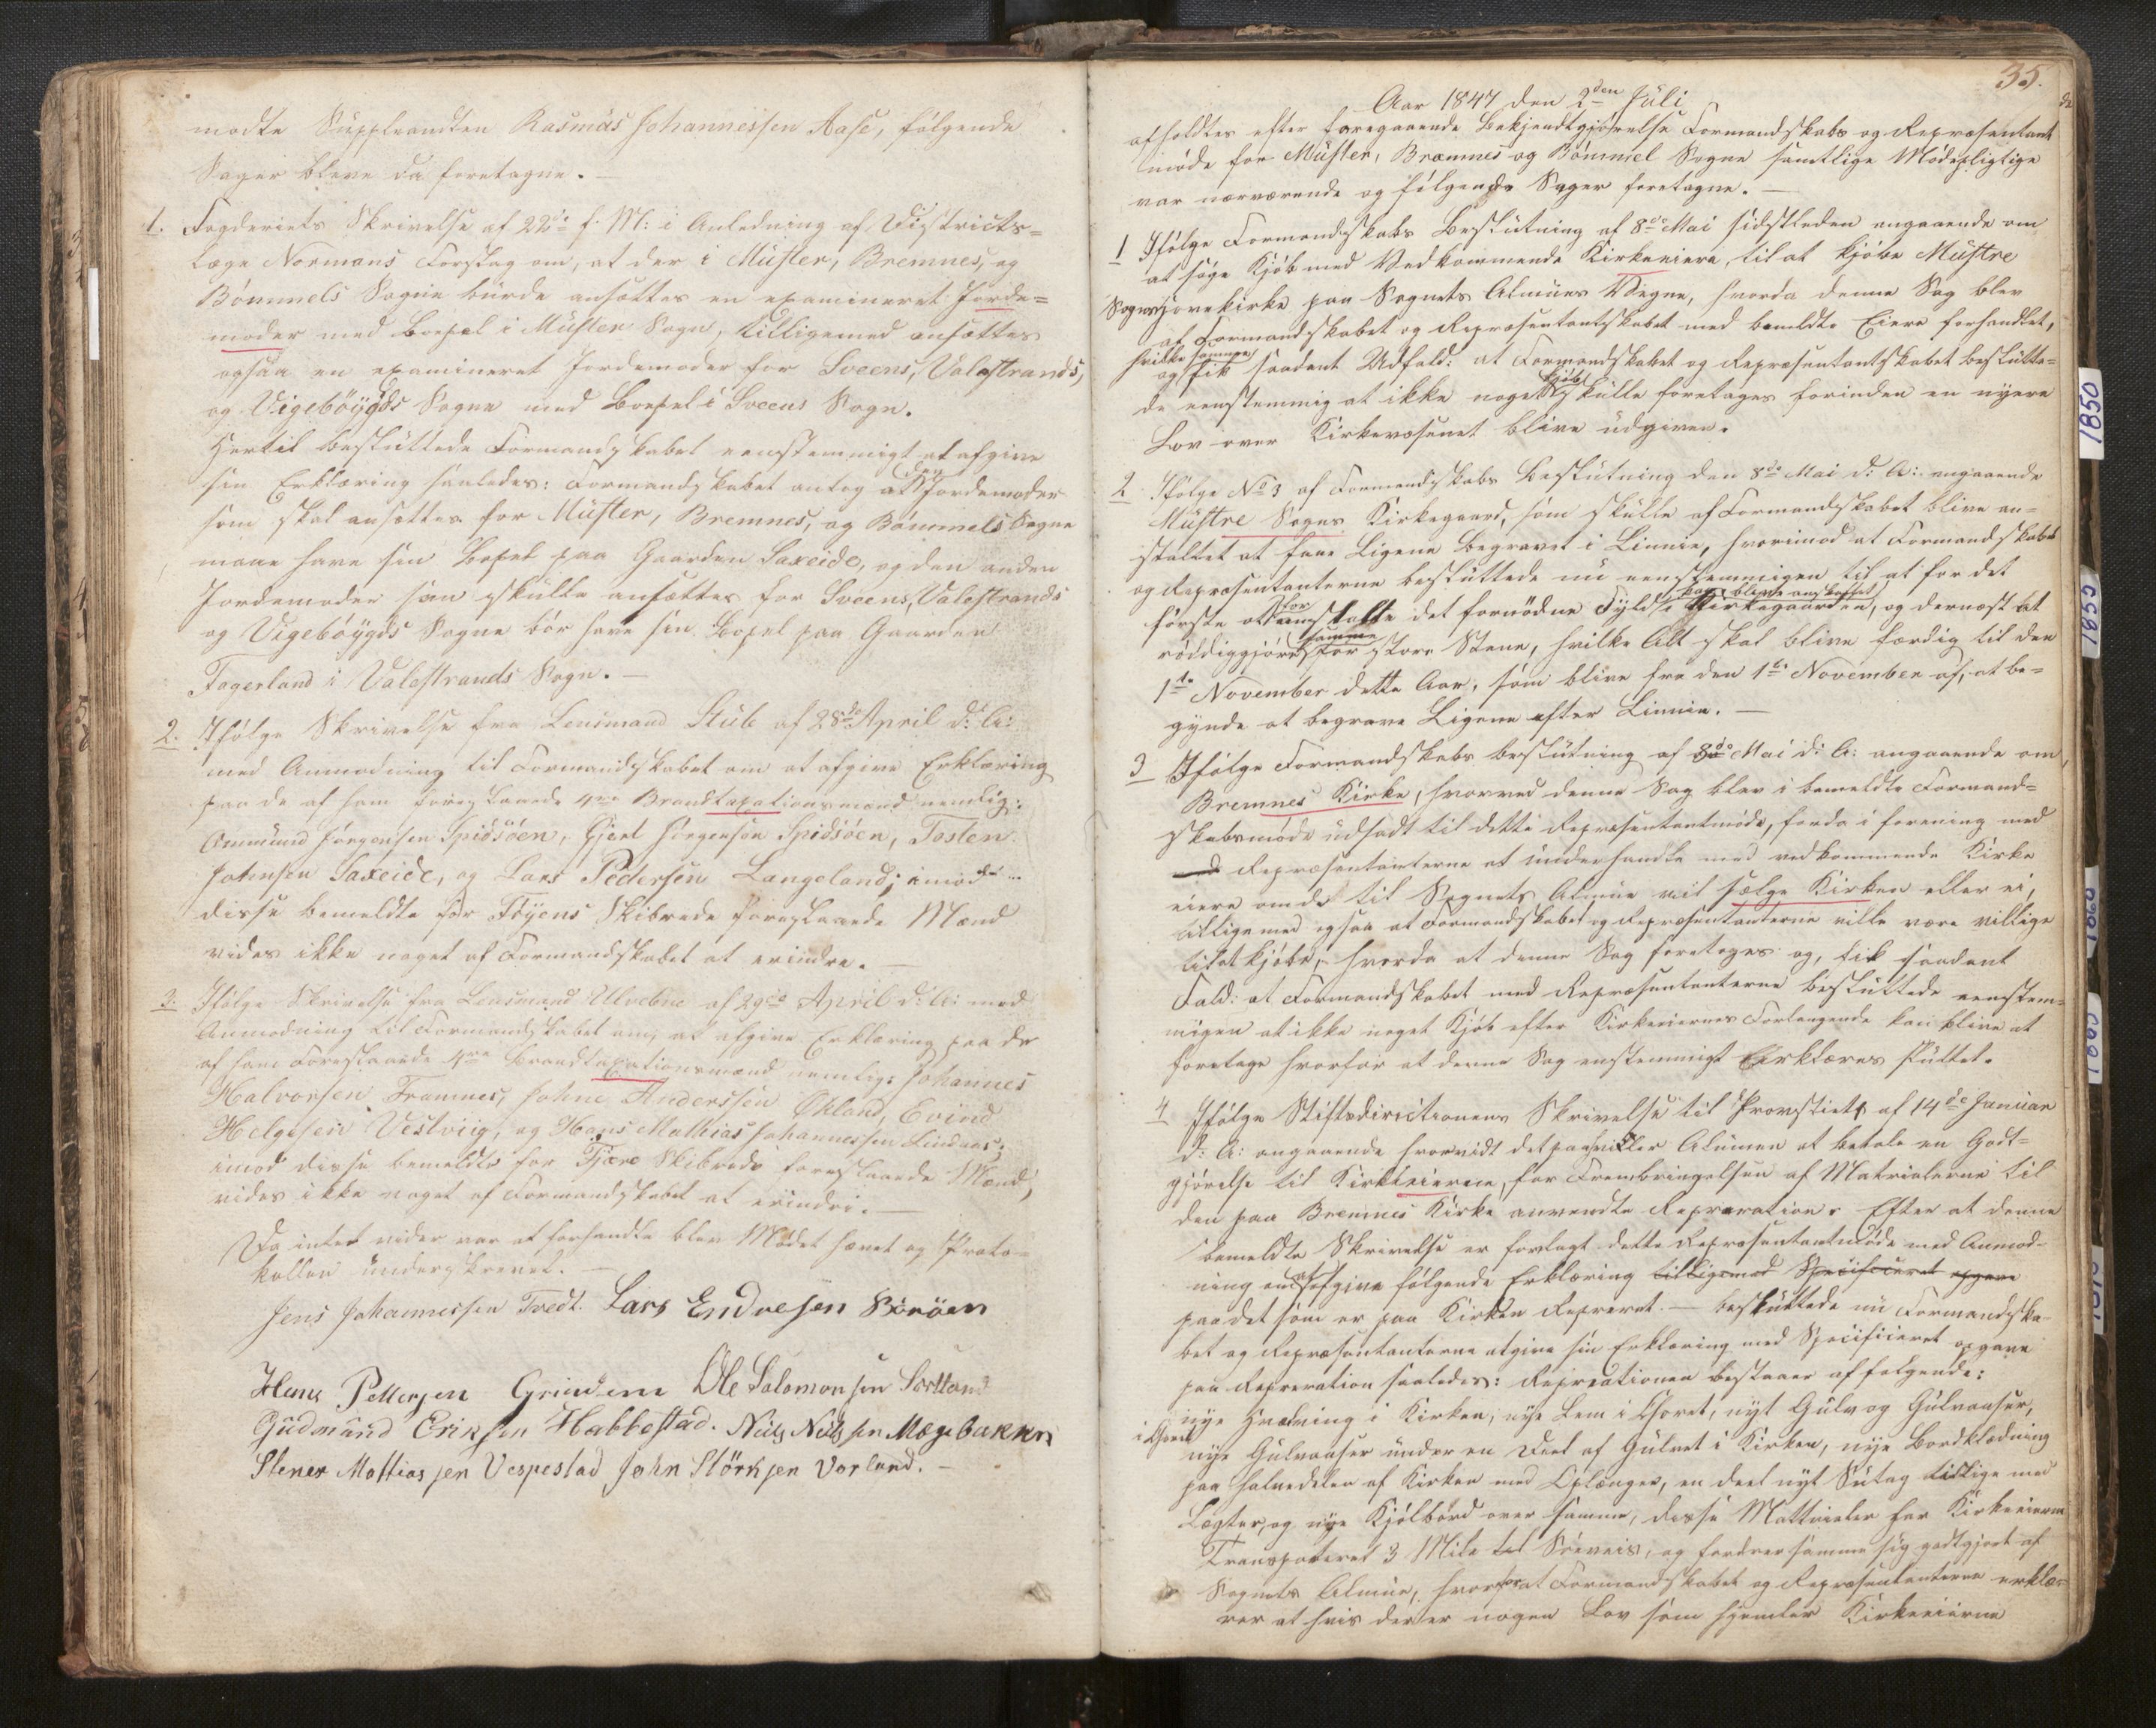 mødte Suppleandten Rasmus Johannessen Aase, følgende
Sager bleve da foretagne. —
1. Fogderiets Skrivelse af 22de f. M: i Anledning af Districts=
Læge Normans Forslag om, at der i Muster, Bremnes, og
Bømmels Sogne burde ansættes en examineret Jorde=
moder med Bopel i Muster Sogn, tilligemed ansættes
ogsaa en examineret Jordemoder for Sveens, Valestrands,
og Vigebøygds Sogne med Bopel i Sveens Sogn.
Hertil besluttede Formandskabet eenstemmigt at afgive
sin Erklæring saaledes: Formandskabet antog at den Jordemoder
som skal ansættes for Muster, Bremnes, og Bømmels Sogne
maae have sin Bopel paa Gaarden Saxeide, og den anden
Jordemoder som skulle ansættes for Sveens, Valestrands
og Vigebøygds Sogne bør have sin Bopel paa Gaarden
Fagerland i Valestrands Sogn. —
2. Ifølge Skrivelse fra Lensmand Stub af 28de April d: A:
med Anmodning til Formandskabet om at afgive Erklæring
paa de af ham foreslaaede 4re Brandtaxationsmænd nemlig:
Ammund Jørgensen Spidsøen, Gjert Jørgensen Spidsøen, Tosten
Johnsen Saxeide, og Lars Pedersen Langeland; imod
disse bemeldte for Føyens Skibrede foreslaaede Mænd
vides ikke noget af Formandskabet at erindre. —
3. Ifølge Skrivelse fra Lensmand Ulvebne af 29de April d: A: med
Anmodning til Formandskabet om, at afgive Erklæring paa de
af ham Foreslaaede 4re Brandtaxationsmænd nemlig: Johannes
Halvorsen Framnes, Johne Anderssen Økland, Evind
Helgesen Vestviig, og Hans Mathias Johannessen Lindaas;
imod disse bemeldte for Fjære Skibrede foreslaaede Mænd,
vides ikke noget af Formandskabet at erindre. —
Da intet vider var at forhandle blev Mødet hævet og Proto=
kollen underskrevet. —
Jens Johannessen Tvedt. Lars Endresen Sørøen
Hans Pettersen Grindem Ole Salomonsen Sortland
Gudmund Eriksen Habbestad. Niels Nielssen Mæge bakken
Stener Mattiassen Vespestad John Størksen Vorland. —
35.
Aar 1847 den 2den Juli
afholdtes efter foregaaende Bekjendtgjørelse Formandskabs og Repræsentant
møde for Muster, Bremnes og Bømmel Sogne samtlige Mødepligtige
var nærværende og følgende Sager foretagne. —
1 Ifølge Formandskabs Beslutning af 8de Mai sidstleden angaaende om
at søge Kjøb med Vedkommende Kirkeeiere, til at kjøbe Mustre
Sogns kirke paa Sognets Almues Vegne, hvorda denne Sag blev
af Formandskabet og Repræsentantskabet med bemeldte Eiere forhandlet,
hvilke samme
og fik saadant Udfald: at Formandskabet og Repræsentantskabet beslutte=
de eenstemmig at ikke noget Kjøb skulle foretages forinden en nyere
Lov over Kirkevæsenet blive udgiven.
2 Ifølge No 3 af Formandskabs Beslutning den 8de Mai d: A: angaaende
Mustre Sogns Kirkegaard, som skulle af Formandskabet blive an=
staltet at faae Ligene begravet i Linnie, hvorimod at Formandskabet
og Repræsentanterne besluttede nu eenstemmigen til at for det
første at for anstalte det fornødne Fyld i Kirkegaarden kan blive anskaffet, og dernæst at
røddiggjøres samme for store Stene, hvilke Alt skal blive færdig til den
1te November dette Aar, som blive fra den 1te November af, at be=
gynde at begrave Ligene efter Linnie. —
3 Ifølge Formandskabs beslutning af 8de Mai d: A: angaaende om
Bremnes Kirke, hvorved denne Sag blev i bemeldte Formand=
skabsmøde udsadt til dette Repræsentantmøde, forda i forening med
Repræsentanterne at underhandle med vedkommende Kirke
eiere om de til Sognets Almue vil sælge Kirken eller ei,
tilligemed ogsaa at Formandskabet og Repræsentanterne ville være villige
til at kjøbe, hvorda at denne Sag foretoges og, fik saadant
Fald: at Formandskabet med Repræsentanterne besluttede eenstem=
migen at ikke noget Kjøb efter Kirkeeiernes Forlangende kan blive at
foretage hvorfor at denne Sag enstemmigt Erklæres sluttet.
4 Ifølge Stiftsdirectionens Skrivelse til Provstiet af 14de Januar
d: A: angaaende hvorvidt det paahviler Almuen at betale en Godt=
gjørelse til Kirkeeierne, for Frembringelsen af Matrialerne til
den paa Bremnes Kirke anvendte Repraration. Efter at denne
bemeldte Skrivelse er forlagt dette Repræsentantmøde med Anmod=
ning om at afgive følgende Erklæring tilligemed Specificeret opgave
paa det som er paa Kirken Repreret. — besluttede nu Formandska=
bet og Repræsentanterne afgive sin Erklæring med Specificeret opgave
paa Repreration saaledes: Repreationen bestaaer af følgende:
nye Hvælving i Kirken, nye Lem i Choret, nyt Gulv og Gulvaaser,
i Choret
nye Gulvaaser under en Deel af Gulvet i Kirken, nye Bordklædning
paa halvedelen af Kirken med Oplænger, en deel nyt Sutag tillige med
Lægter, og nye Kjølbord over samme, disse Mattrialer har Kirkeeierne
Transporteret 3 Mile til Søeveis, og fordrer samme sig godtgjort af
Sognets Almue, hvorfor at Formandskabet og Repræsentanterne erklæ=
rer at hvis der er nogen Lov som hjemler Kirkeeierne
1850
1855
1860
1865